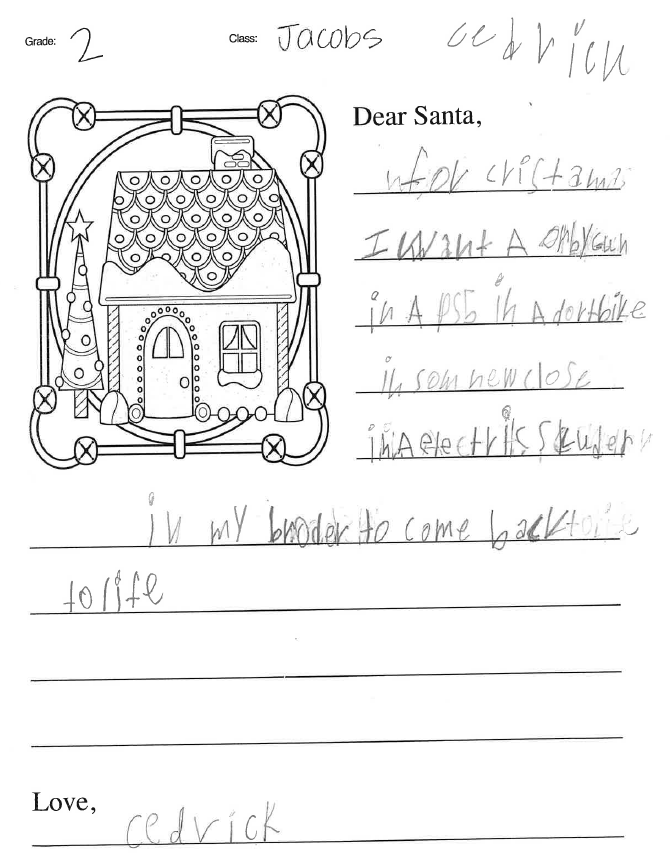 Grade: 2 Class: Jacobs cedrick
Dear Santa,
for cristams
I want A orbyGun
in A PS5 in A dortbike
in som new close
in A electric Skuder
in my broder to come back
to life
Love,
cedrick